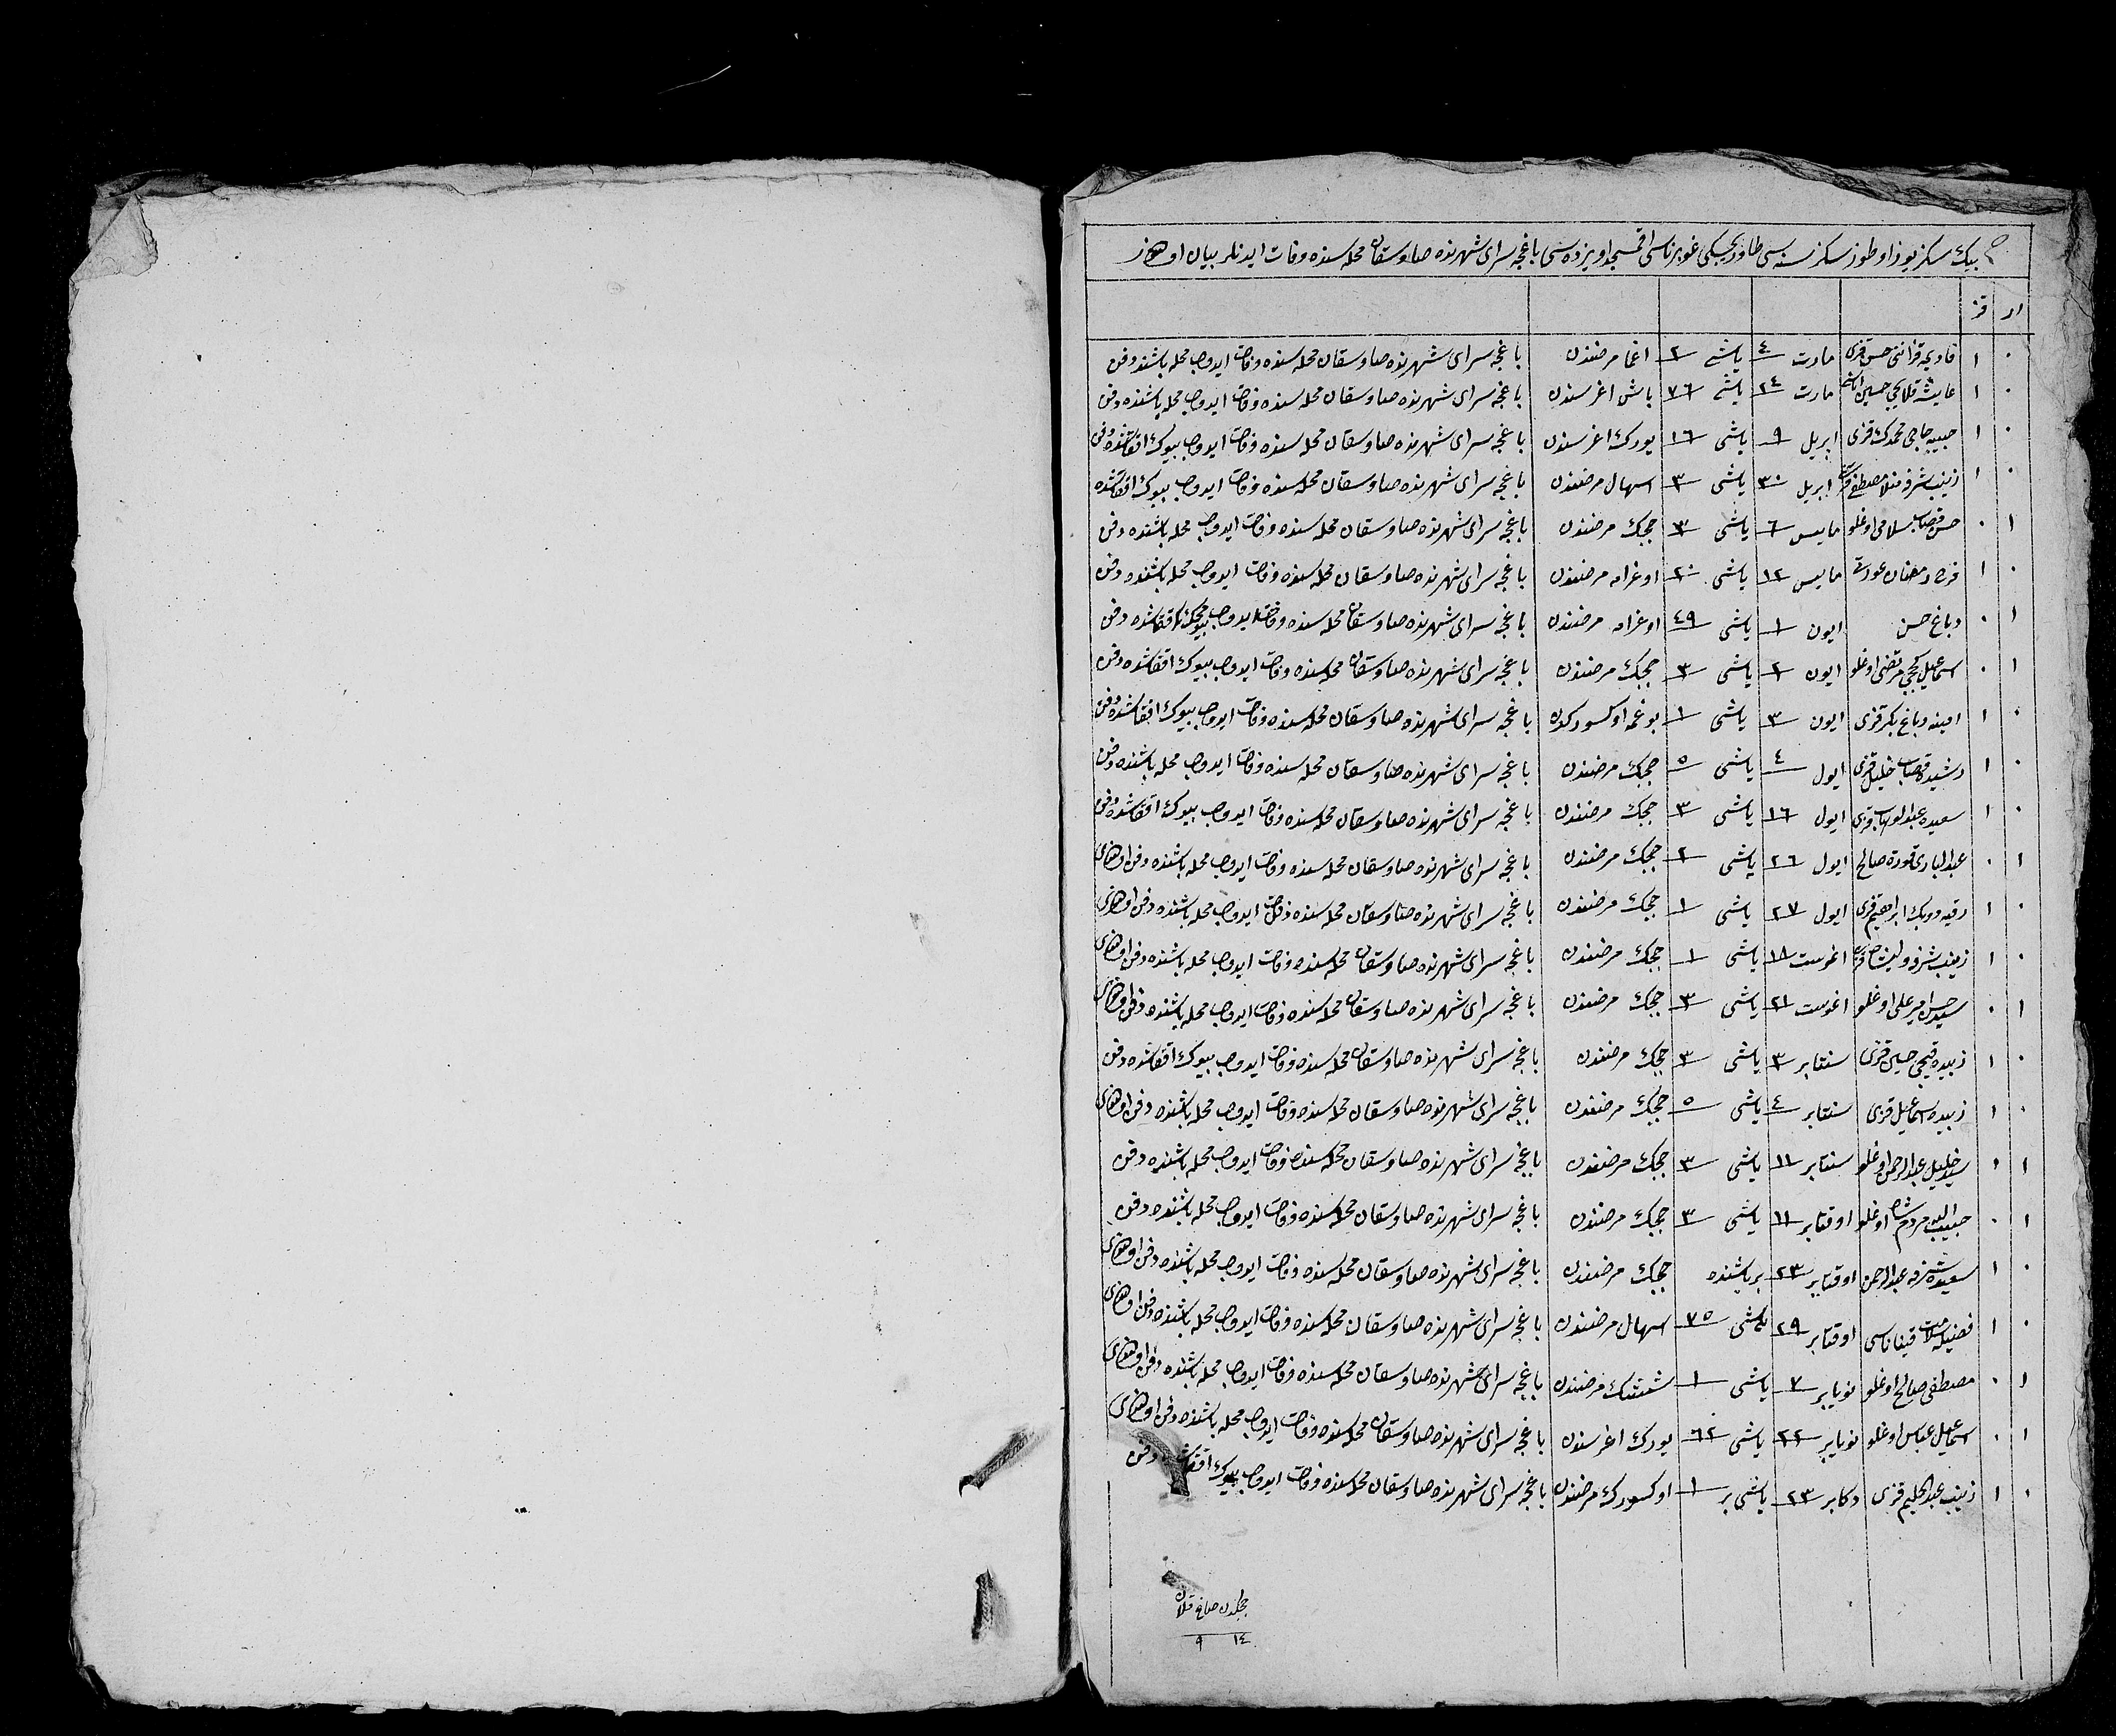 بيك سكز يوز اوطوز سكز سنه سی طاوريچسكی غوبرناسی اقمسجد اویزده سی باغچه سرای شهرنده صاوسقان محله سنده وفات ايدنلر بيان اولنور
ار قز
٠ ١ حسن قزی مارت ٤ ياشی ٢ اغما مرضندن باغچه سرای شهرنده صاوسقان محله سنده وفات ايدوب محله باشنده دفن
٠ ١ عايشه قلايجی حسين اناسی مارت ٢٤ ياشی ٧٦ باش اغرسندن باغچه سرای شهرنده صاوسقان محله سنده وفات ايدوب محله باشنده دفن
٠ ١ حبيبه حاجی محمدك قزی ابريل ٩ ياشی ١٦ يورك اغرسندن باغچه سرای شهرنده صاوسقان محله سنده وفات ايدوب بيوك اققاشده دفن
٠ ١ زينب شرفه منلا مصطفی قزی ابريل ٣٠ ياشی ٣ اسهال مرضندن باغچه سرای شهرنده صاوسقان محله سنده وفات ايدوب بيوك اققاشده
١ ٠ حسن قصاب سلامی اوغلو مايس ٦ ياشی ٣ چچك مرضندن باغچه سرای شهرنده صاوسقان محله سنده وفات ايدوب محله باشنده دفن
٠ ١ رمضان عورتی مايس ١٢ ياشی ٢٠ اوغرامه مرضندن باغچه سرای شهرنده صاوسقان محله سنده وفات ايدوب محله باشنده دفن
١ ٠ دباغ حسن ايون ١ ياشی ٤٩ اوغرامه مرضندن باغچه سرای شهرنده صاوسقان محله سنده وفات ايدوب اققاشده دفن
١ ٠ اسماعيل مرتضی اوغلو ايون ٢ ياشی ٣ چچك مرضندن باغچه سرای شهرنده صاوسقان محله سنده وفات ايدوب بيوك اققاشده دفن
٠ ١ امينه دباغ بكر قزی ايون ٣ ياشی ١ بوغمه اوكسوركدن باغچه سرای شهرنده صاوسقان محله سنده وفات ايدوب بيوك اققاشده دفن
٠ ١ رشيده قصاب خليل قزی ايول ٤ ياشی ٥ چچك مرضندن باغچه سرای شهرنده صاوسقان محله سنده وفات ايدوب محله باشنده دفن
٠ ١ سعيده عبدالوهاب قزی ايول ١٦ ياشی ٣ چچك مرضندن باغچه سرای شهرنده صاوسقان محله سنده وفات ايدوب بيوك اققاشده دفن
١ ٠ عبدالباری صالح ايول ٢٦ ياشی ٢ چچك مرضندن باغچه سرای شهرنده صاوسقان محله سنده وفات ايدوب محله باشنده دفن اولنمش
٠ ١ رقيه ابراهيم قزی ايول ٢٧ ياشی ١ چچك مرضندن باغچه سرای شهرنده صاوسقان محله سنده وفات ايدوب محله باشنده دفن اولنمش
٠ ١ زينب شرفه قزی اغوست ١٨ ياشی ١ چچك مرضندن باغچه سرای شهرنده صاوسقان محله سنده وفات ايدوب محله باشنده دفن اولنمش
١ ٠ اميرعلی اوغلو اغوست ٢١ ياشی ٣ چچك مرضندن باغچه سرای شهرنده صاوسقان محله سنده وفات ايدوب محله باشنده دفن اولنمش
٠ ١ زبيده حسين قزی سنتابر ٣ ياشی ٣ چچك مرضندن باغچه سرای شهرنده صاوسقان محله سنده وفات ايدوب بيوك اققاشده دفن
٠ ١ زبيده اسماعيل قزی سنتابر ٤ ياشی ٥ چچك مرضندن باغچه سرای شهرنده صاوسقان محله سنده وفات ايدوب محله باشنده دفن اولنمش
١ ٠ سيد خليل عبدالرحمن اوغلو سنتابر ١١ ياشی ٣ چچك مرضندن باغچه سرای شهرنده صاوسقان محله سنده وفات ايدوب محله باشنده دفن
١ ٠ حبيب الله اوغلو اوقتابر ١١ ياشی ٣ چچك مرضندن باغچه سرای شهرنده صاوسقان محله سنده وفات ايدوب محله باشنده دفن
٠ ١ سعيده شرفه عبدالرحمن اوقتابر ٢٣ بر ياشنده چچك مرضندن باغچه سرای شهرنده صاوسقان محله سنده وفات ايدوب محله باشنده دفن اولنمش
٠ ١ فضيله قيناناسی اوقتابر ٢٩ ياشی ٧٥ اسهال مرضندن باغچه سرای شهرنده صاوسقان محله سنده وفات ايدوب محله باشنده دفن اولنمش
١ ٠ مصطفی صالح اوغلو نويابر ٧ ياشی ١ مرضندن باغچه سرای شهرنده صاوسقان محله سنده وفات ايدوب محله باشنده دفن اولنمش
١ ٠ اسماعيل عباس اوغلو نويابر ٢٢ ياشی ٦٢ يورك اغرسندن باغچه سرای شهرنده صاوسقان محله سنده وفات ايدوب محله باشنده دفن اولنمش
٠ ١ زينب عبدالحليم قزی دكابر ٢٣ ياشی بر ١ اوكسورك مرضندن باغچه سرای شهرنده صاوسقان محله سنده وفات ايدوب بيوك دفن
چچكدن صاغ قلان
١٤ ٩